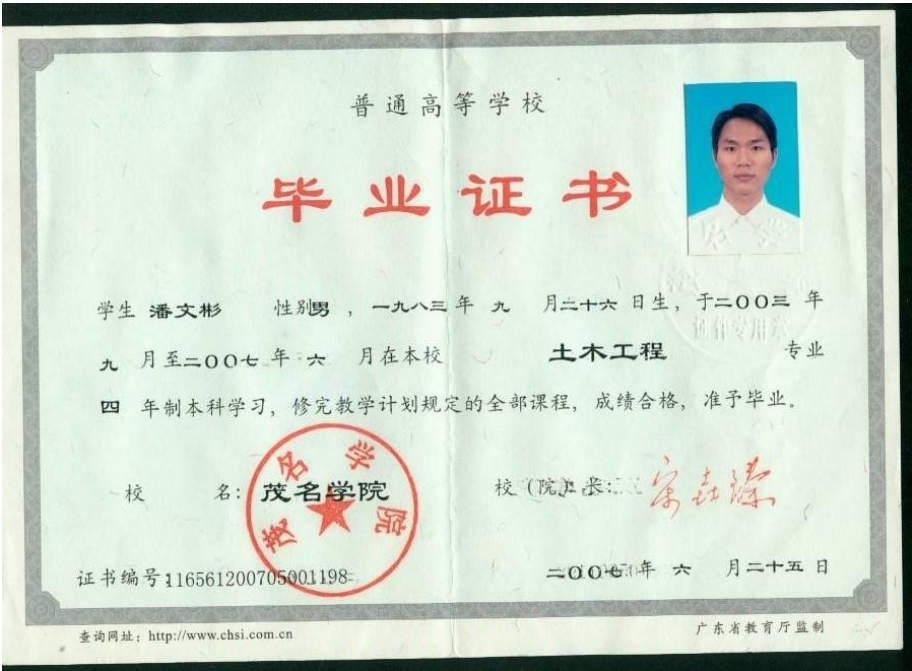 普通高等学校
毕业证书
学生 潘文彬 性别男 ，一九八三 年 九 月二十六 日生，于二00三 年
九 月至二00七 年 六 月在本校 土木工程 专业
四 年制本科学习，修完教学计划规定的全部课程，成绩合格，准予毕业。
校 名：茂名学院 校（院）长：
茂名学院
证书编号：116561200705001198 二00七 年 六 月二十五 日
查询网址：http://www.chsi.com.cn 广东省教育厅监制